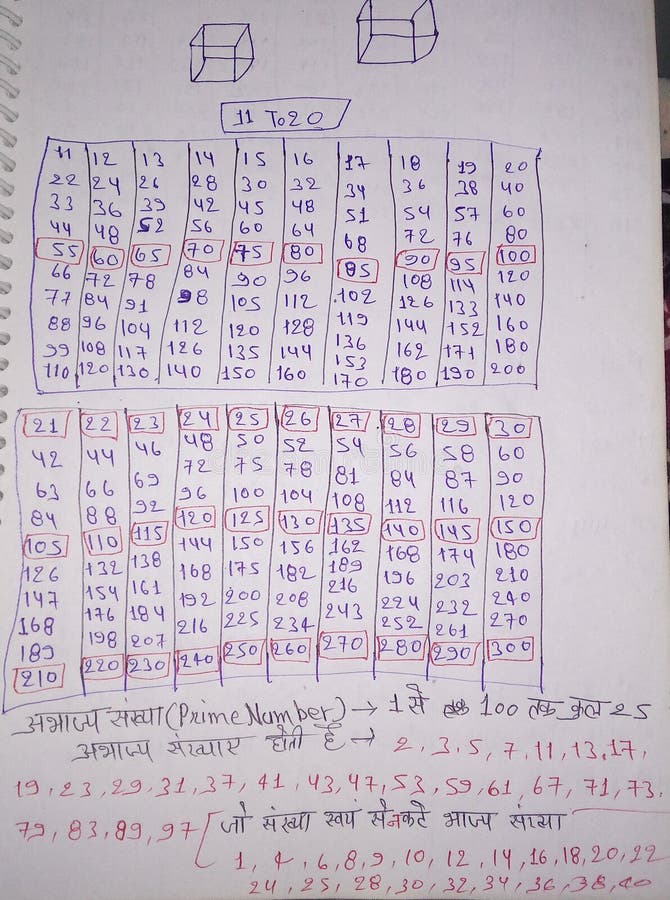 11 To 20
11 12 13 14 15 16 17 18 19 20
22 24 26 28 30 32 34 36 38 40
33 36 39 42 45 48 51 54 57 60
44 48 52 56 60 64 68 72 76 80
55 60 65 70 75 80 85 90 95 100
66 72 78 84 90 96 102 108 114 120
77 84 91 98 105 112 119 126 133 140
88 96 104 112 120 128 136 144 152 160
99 108 117 126 135 144 153 162 171 180
110 120 130 140 150 160 170 180 190 200
21 22 23 24 25 26 27 28 29 30
42 44 46 48 50 52 54 56 58 60
63 66 69 72 75 78 81 84 87 90
84 88 92 96 100 104 108 112 116 120
105 110 115 120 125 130 135 140 145 150
126 132 138 144 150 156 162 168 174 180
147 154 161 168 175 182 189 196 203 210
168 176 184 192 200 208 216 224 232 240
189 198 207 216 225 234 243 252 261 270
210 220 230 240 250 260 270 280 290 300
अभाज्य संख्या (Prime Number) → 1 से 100 तक कुल 25
अभाज्य संख्याए होती है → 2, 3, 5, 7, 11, 13, 17,
19, 23, 29, 31, 37, 41, 43, 47, 53, 59, 61, 67, 71, 73,
79, 83, 89, 97 [ जो संख्या स्वयं से न कटे भाज्य संख्या
1, 4, 6, 8, 9, 10, 12, 14, 16, 18, 20, 22
24, 25, 28, 30, 32, 34, 36, 38, 40